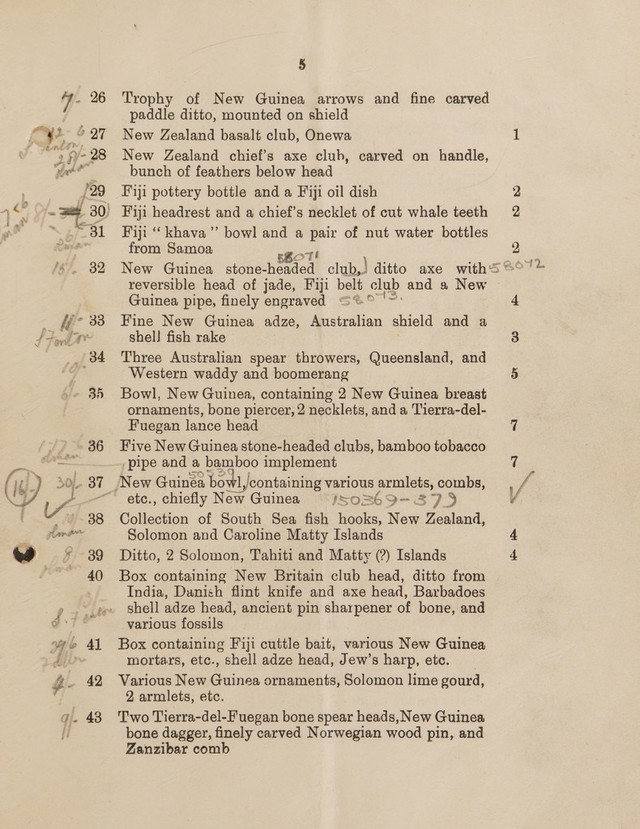 5
26 Trophy of New Guinea arrows and fine carved
paddle ditto, mounted on shield
27 New Zealand basalt club, Onewa 1
28 New Zealand chief's axe club, carved on handle,
bunch of feathers below head
29 Fiji pottery bottle and a Fiji oil dish 2
30 Fiji headrest and a chief's necklet of cut whale teeth 2
31 Fiji “ khava ” bowl and a pair of nut water bottles
from Samoa 2
58071
32 New Guinea stone-headed club, ditto axe with 58072
reversible head of jade, Fiji belt club and a New
Guinea pipe, finely engraved 58073. 4
33 Fine New Guinea adze, Australian shield and a
shell fish rake 3
34 Three Australian spear throwers, Queensland, and
Western waddy and boomerang 5
35 Bowl, New Guinea, containing 2 New Guinea breast
ornaments, bone piercer, 2 necklets, and a Tierra-del-
Fuegan lance head 7
36 Five New Guinea stone-headed clubs, bamboo tobacco
pipe and a bamboo implement 7
16/ 30/- 37 New Guinea bowl, containing various armlets, combs,
etc., chiefly New Guinea 150369-373
38 Collection of South Sea fish hooks, New Zealand,
Solomon and Caroline Matty Islands 4
8 39 Ditto, 2 Solomon, Tahiti and Matty (?) Islands 4
40 Box containing New Britain club head, ditto from
India, Danish flint knife and axe head, Barbadoes
shell adze head, ancient pin sharpener of bone, and
various fossils
41 Box containing Fiji cuttle bait, various New Guinea
mortars, etc., shell adze head, Jew's harp, etc.
42 Various New Guinea ornaments, Solomon lime gourd,
2 armlets, etc.
43 Two Tierra-del-Fuegan bone spear heads, New Guinea
bone dagger, finely carved Norwegian wood pin, and
Zanzibar comb